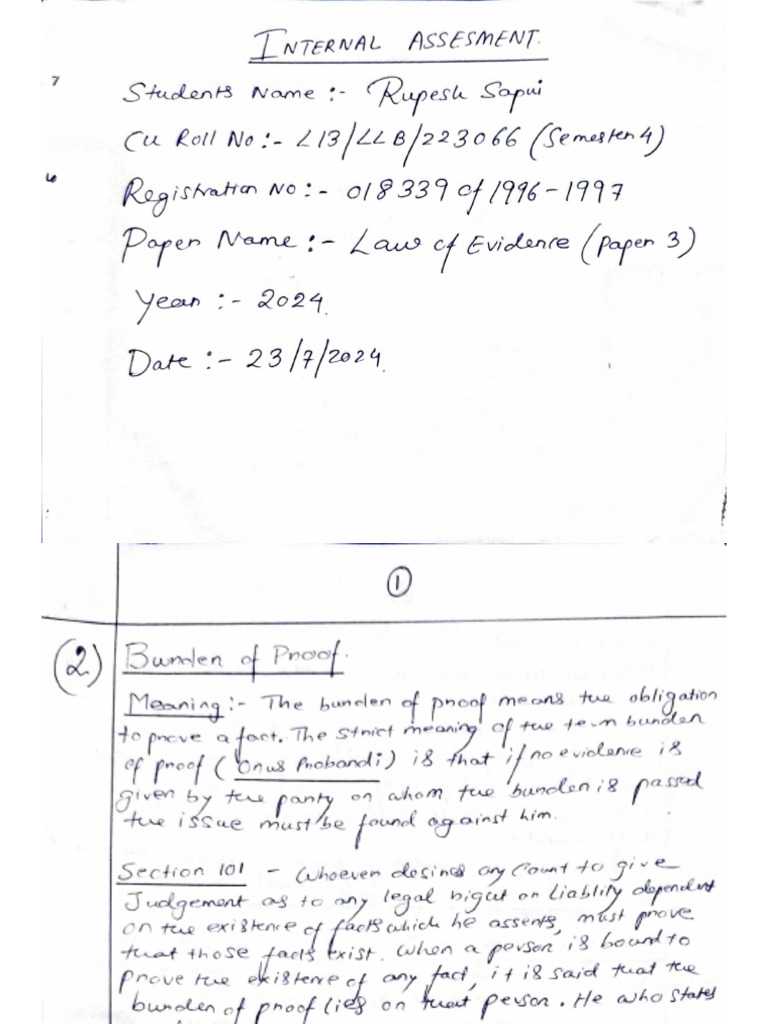 INTERNAL ASSESMENT.
7
Students Name :- Rupesh Sapui
CU Roll No :- L13/LLB/223066 (Semester 4)
6
Registration No :- 018339 of 1996-1997
Paper Name :- Law of Evidence (Paper 3)
Year :- 2024.
Date :- 23/7/2024.
1
(2) Burden of Proof.
Meaning :- The burden of proof means the obligation
to prove a fact. The strict meaning of the term burden
of proof (Onus Probandi) is that if no evidence is
given by the party on whom the burden is passed
the issue must be found against him.
Section 101 - Whoever desires any Court to give
Judgement as to any legal right or Liablity dependent
on the existence of facts which he asserts, must prove
that those facts exist. When a person is bound to
prove the existence of any fact, it is said that the
burden of proof lies on that person. He who states